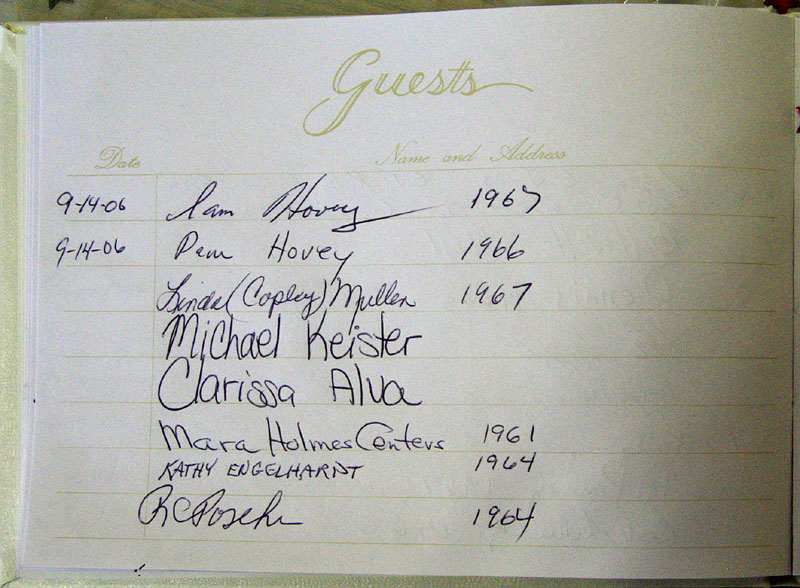 Guests
Date Name and Address
9-14-06 Sam Hovey 1967
9-14-06 Pam Hovey 1966
Linda (Copley) Mullen 1967
Michael Keister
Clarissa Alva
Mara Holmes Centers 1961
KATHY ENGELHARDT 1964
RC 1964